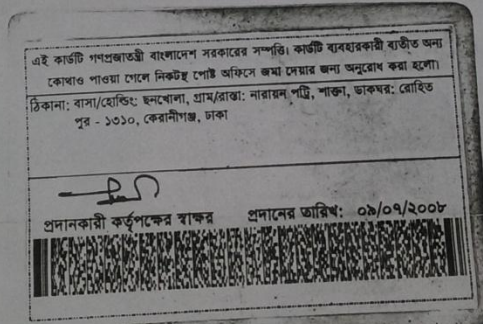 এই কার্ডটি গণপ্রজাতন্ত্রী বাংলাদেশ সরকারের সম্পত্তি। কার্ডটি ব্যবহারকারী ব্যতীত অন্য
কোথাও পাওয়া গেলে নিকটস্থ পোষ্ট অফিসে জমা দেয়ার জন্য অনুরোধ করা হলো।
ঠিকানা: বাসা/হোল্ডিং: ছনখোলা, গ্রাম/রাস্তা: নারায়ন পট্টি, শাক্তা, ডাকঘর: রোহিত
পুর - ১৩১০, কেরানীগঞ্জ, ঢাকা
প্রদানকারী কর্তৃপক্ষের স্বাক্ষর প্রদানের তারিখ: ০৯/০৭/২০০৮